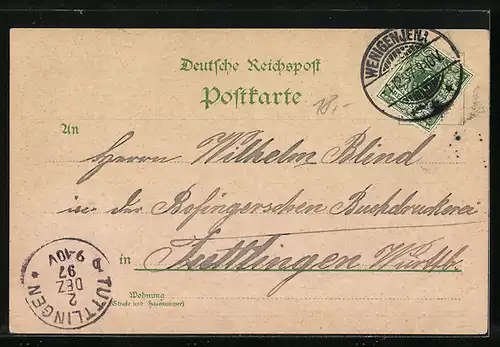 Deutsche Reichspost
Postkarte
18.-
WENIGENJENA
An
Herrn Wilhelm Blind
in der Bofingerschen Buchdruckerei
in Tuttlingen Württb.
Wohnung
(Straße und Hausnummer)
TUTTLINGEN
2
DEZ
97
9-10V
b